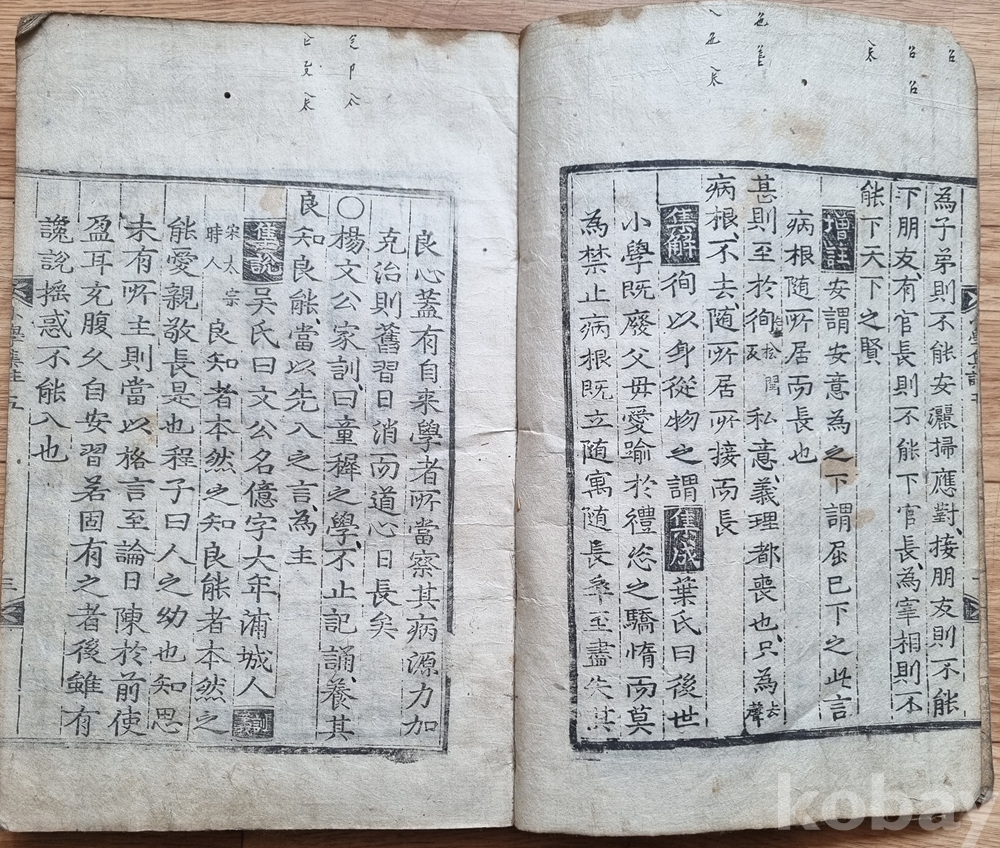 為子弟則不能安灑掃應對接朋友則不能
下朋友有官長則不能下官長為宰相則不
能下天下之賢
增註安謂安意為之下謂屈已下之此言
病根随所居而長也
甚則至於徇私意義理都喪也只為去聲
病根不去随所居所接而長
集解徇以身從物之謂集成葉氏曰後世
小學既廢父母愛踰於禮恣之驕惰而莫
為禁止病根既立随寓随長卒至盡失其
良心蓋有自来學者所當察其病源力加
克治則舊習日消而道心日長矣
○楊文公家訓曰童穉之學不止記誦養其
良知良能當以先入之言為主
舊說吳氏曰文公名億字大年浦城人訓義
宋太宗時人良知者本然之知良能者本然之
能愛親敬長是也程子曰人之幼也知思
未有所主則當以格言至論日陳於前使
盈耳充腹久自安習若固有之者後雖有
讒說搖惑不能入也
kobay